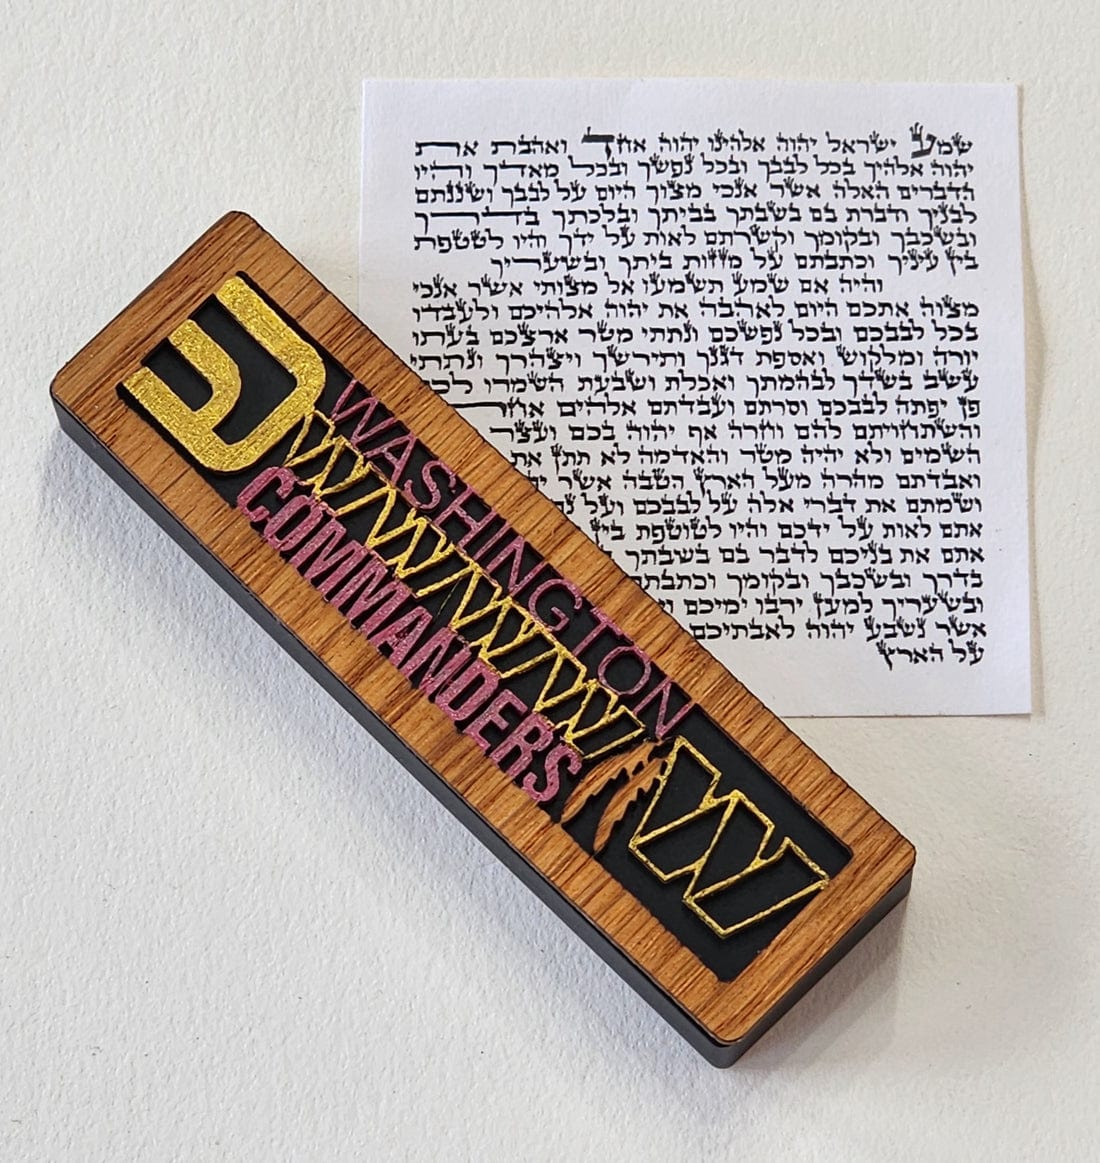 שמע ישראל יהוה אלהינו יהוה אחד ואהבת את
יהוה אלהיך בכל לבבך ובכל נפשך ובכל מאדך והיו
הדברים האלה אשר אנכי מצוך היום על לבבך ושננתם
לבניך ודברת בם בשבתך בביתך ובלכתך בדרך
ובשכבך ובקומך וקשרתם לאות על ידך והיו לטטפת
בין עיניך וכתבתם על מזזות ביתך ובשעריך
והיה אם שמע תשמעו אל מצותי אשר אנכי
מצוה אתכם היום לאהבה את יהוה אלהיכם ולעבדו
בכל לבבכם ובכל נפשכם ונתתי מטר ארצכם בעתו
יורה ומלקוש ואספת דגנך ותירשך ויצהרך ונתתי
עשב בשדך לבהמתך ואכלת ושבעת השמרו לכם
פן יפתה לבבכם וסרתם ועבדתם אלהים
והשתחויתם להם וחרה אף יהוה בכם ועצר
השמים ולא יהיה מטר והאדמה לא תתן את
ואבדתם מהרה מעל הארץ הטבה אשר
ושמתם את דברי אלה על לבבכם ועל
אתם לאות על ידכם והיו לטוטפת בין
אתם את בניכם לדבר בם בשבתך
בדרך ובשכבך ובקומך וכתבתם
ובשעריך למען ירבו ימיכם
אשר נשבע יהוה לאבתיכם
על הארץ
ש
WASHINGTON
COMMANDERS
W